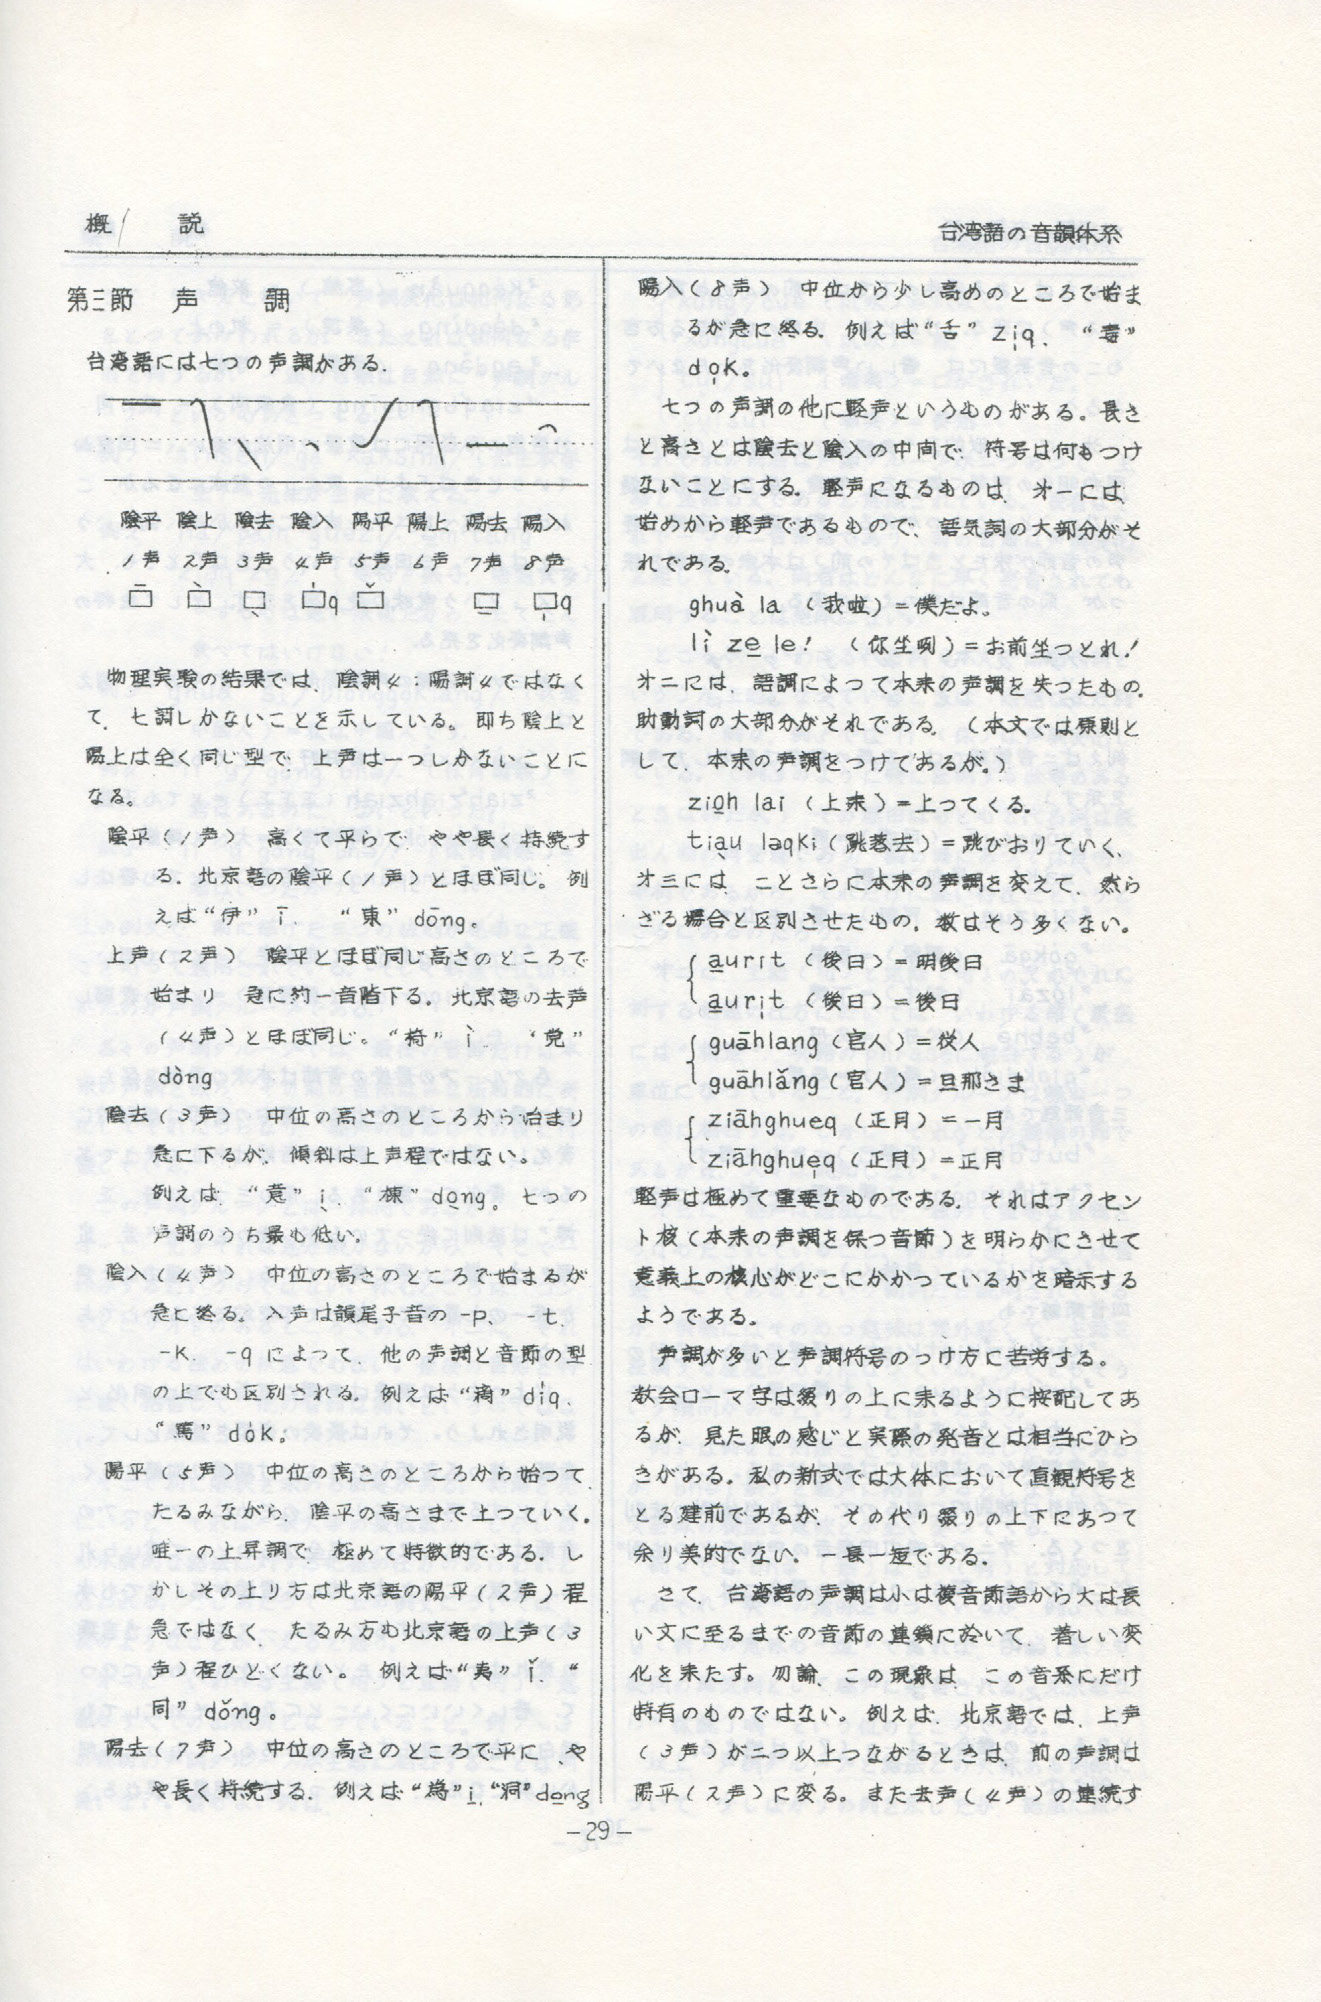 概 説
台湾語の音韻体系
第三節 声 調
台湾語には七つの声調がある.
陰平 陰上 陰去 陰入 陽平 陽上 陽去 陽入
1声 2声 3声 4声 5声 6声 7声 8声
□̄ □̀ □̖ □̍q □̌ □̠ □̩q
物理実験の結果では、陰調4：陽調4ではなく
て、七調しかないことを示している。即ち陰上と
陽上は全く同じ型で、上声は一つしかないことに
なる。
陰平(1声) 高くて平らで、やや長く持続す
る。北京語の陰平(1声)とほぼ同じ。例
えば“伊” ī、 “東” dōng。
上声(2声) 陰平とほぼ同じ高さのところで
始まり 急に約一音階下る。北京語の去声
(4声)とほぼ同じ。“椅” ì、 “党”
dòng
陰去(3声) 中位の高さのところから始まり
急に下るが、傾斜は上声程ではない。
例えば、“意” i̖、“棟” do̖ng。七つの
声調のうち最も低い。
陰入(4声) 中位の高さのところで始まるが
急に終る。入声は韻尾子音の -p、 -t、
-k、 -q によって、他の声調と音節の型
の上でも区別される。例えば“滴” di̍q、
“篤” do̍k。
陽平(5声) 中位の高さのところから始って
たるみながら、陰平の高さまで上っていく。
唯一の上昇調で、極めて特徴的である。し
かしその上り方は北京語の陽平(2声)程
急ではなく、たるみ方も北京語の上声(3
声)程ひどくない。 例えば“夷” ǐ、“
同” dǒng。
陽去(7声) 中位の高さのところで平に、や
や長く持続する。例えば“為” i̠、“洞” do̠ng
陽入(8声) 中位から少し高めのところで始ま
るが急に終る。例えば“舌” zi̩q、 “毒”
do̩k。
七つの声調の他に軽声というものがある。長さ
と高さとは陰去と陰入の中間で、符号は何もつけ
ないことにする。軽声になるものは、オ一には、
始めから軽声であるもので、語気詞の大部分がそ
れである。
ghuà la (我啦)＝僕だよ。
lì ze̠ le! (你坐咧)＝お前坐つとれ！
オ二には、語調によつて本来の声調を失つたもの。
助動詞の大部分がそれである。(本文では原則と
して、本来の声調をつけてあるが。)
zio̠h lai (上来)＝上つてくる。
tia̖u laqki (跳落去)＝跳びおりていく、
オ三には、ことさらに本来の声調を変えて、然ら
ざる場合と区別させたもの。数はそう多くない。
a̠urit (後日)＝明後日
auri̩t (後日)＝後日
guāhlang (官人)＝役人
guāhlǎng (官人)＝旦那さま
ziāhghueq (正月)＝一月
ziāhghue̩q (正月)＝正月
軽声は極めて重要なものである。それはアクセン
ト核(本来の声調を保つ音節)を明らかにさせて
意義上の核心がどこにかかつているかを暗示する
ようである。
声調が多いと声調符号のつけ方に苦労する。
教会ローマ字は綴りの上に来るように按配してあ
るが、見た眼の感じと実際の発音とは相当にひら
きがある。私の新式では大体において直観符号を
とる建前であるが、その代り綴りの上下にあつて
余り美的でない。一長一短である。
さて、台湾語の声調は小は複音節語から大は長
い文に至るまでの音節の連鎖に於いて、著しい変
化を来たす。勿論、この現象は、この音系にだけ
特有のものではない。例えば、北京語では、上声
(3声)が二つ以上つながるときは、前の声調は
陽平(2声)に変る。また去声(4声)の連続す
-29-